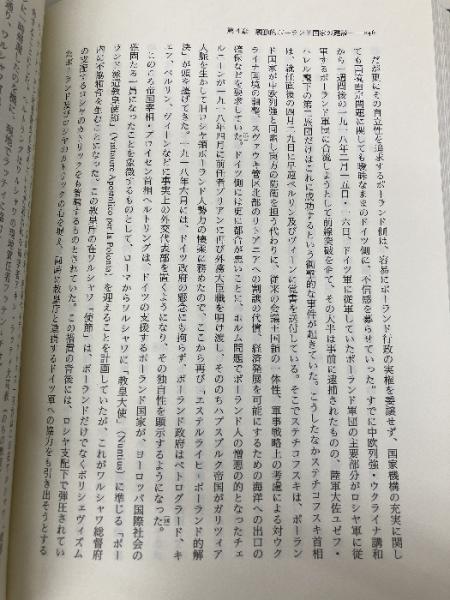 第4章 衛動的ポーランド国家の建設— 246
だが更にその自立性を追求するポーランド側は、容易にポーランド行政の実権を委譲せず、国家機構の充実に関し
ても「国境画」問題に関しても曖昧なままのドイツ側に、不信感を募らせていった。すでに中欧列強・ウクライナ講和
から一週間後の一九一八年二月一五日・一六日、ドイツ軍に従軍していたポーランド軍団の主要部分がロシヤ軍に従
うポーランド軍団に合流しようとして前線突破を企て、その大半は事前に逮捕されたものの、陸軍大佐ユゼフ・
ハレル麾下の第二旅団だけはこれに成功するという衝撃的な事件が起きていた。こうしたなかステチコフスキ首相
は、就任直後の四月二九日に早速ベルリン及びヴィーンに覚書を送付している。そこでステチコフスキは、ポーラン
ド国家が中欧列強と同盟し東方の防衛を担う代わりに、従来の会議王国領の一体性、軍事戦略上の考慮による対ウク
ライナ国境の調整、スヴァウキ管区北部のリトアニアへの割譲の代償、経済発展を可能にするための海洋への出口の
確保などを要求していた。ドイツ側には更に都合が悪いことに、ホルム問題でポーランド人の憎悪の的となったチェ
ルニーンが一九一八年四月に前任者ブリアンに再び外務大臣職を明け渡し、そののちハプスブルク帝国がガリツィア
人脈を生かして旧ロシヤ領ポーランド人勢力の懐柔に務めたので、ここから再び「エステルライヒ＝ポーランド的解
決」が頭を擡げてきた。一九一八年六月には、ドイツ政府の懸念にも拘らず、ポーランド政府はペトログラード、キ
エフ、ベルリン、ヴィーンなどに事実上の外交代表部を置くようになり、その独自性を顕示するようになった。
このころ帝国宰相・プロイセン首相ヘルトリングは、ドイツの支援するポーランド国家が、ヨーロッパ国際社会の
歴然たる一員になったことを象徴するものとして、ローマからワルシャワに「教皇大使」（Nuntius）に準じる「ポー
ランド派遣教皇使節」（Visitatore Apostolico per la Polonia）を迎えることを計画していたが、これがワルシャワ総督府
内に不協和音を生むことになった。この教皇庁の在ワルシャワ「使節」は、ポーランドだけでなくボリシェヴィズム
の支配するロシヤのカトリックをも管轄するものとされていた。この措置の背後には、ロシヤ支配下で弾圧されてい
たポーランド及びロシヤのカトリックの心を捉え、同時に教皇庁と連携するドイツ軍への協力をも引き出そうとする